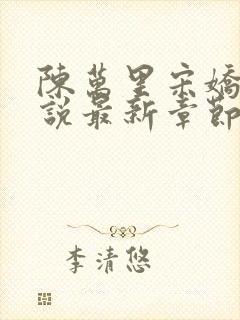 陳萬里宋嬌
說最新章節
李清悠